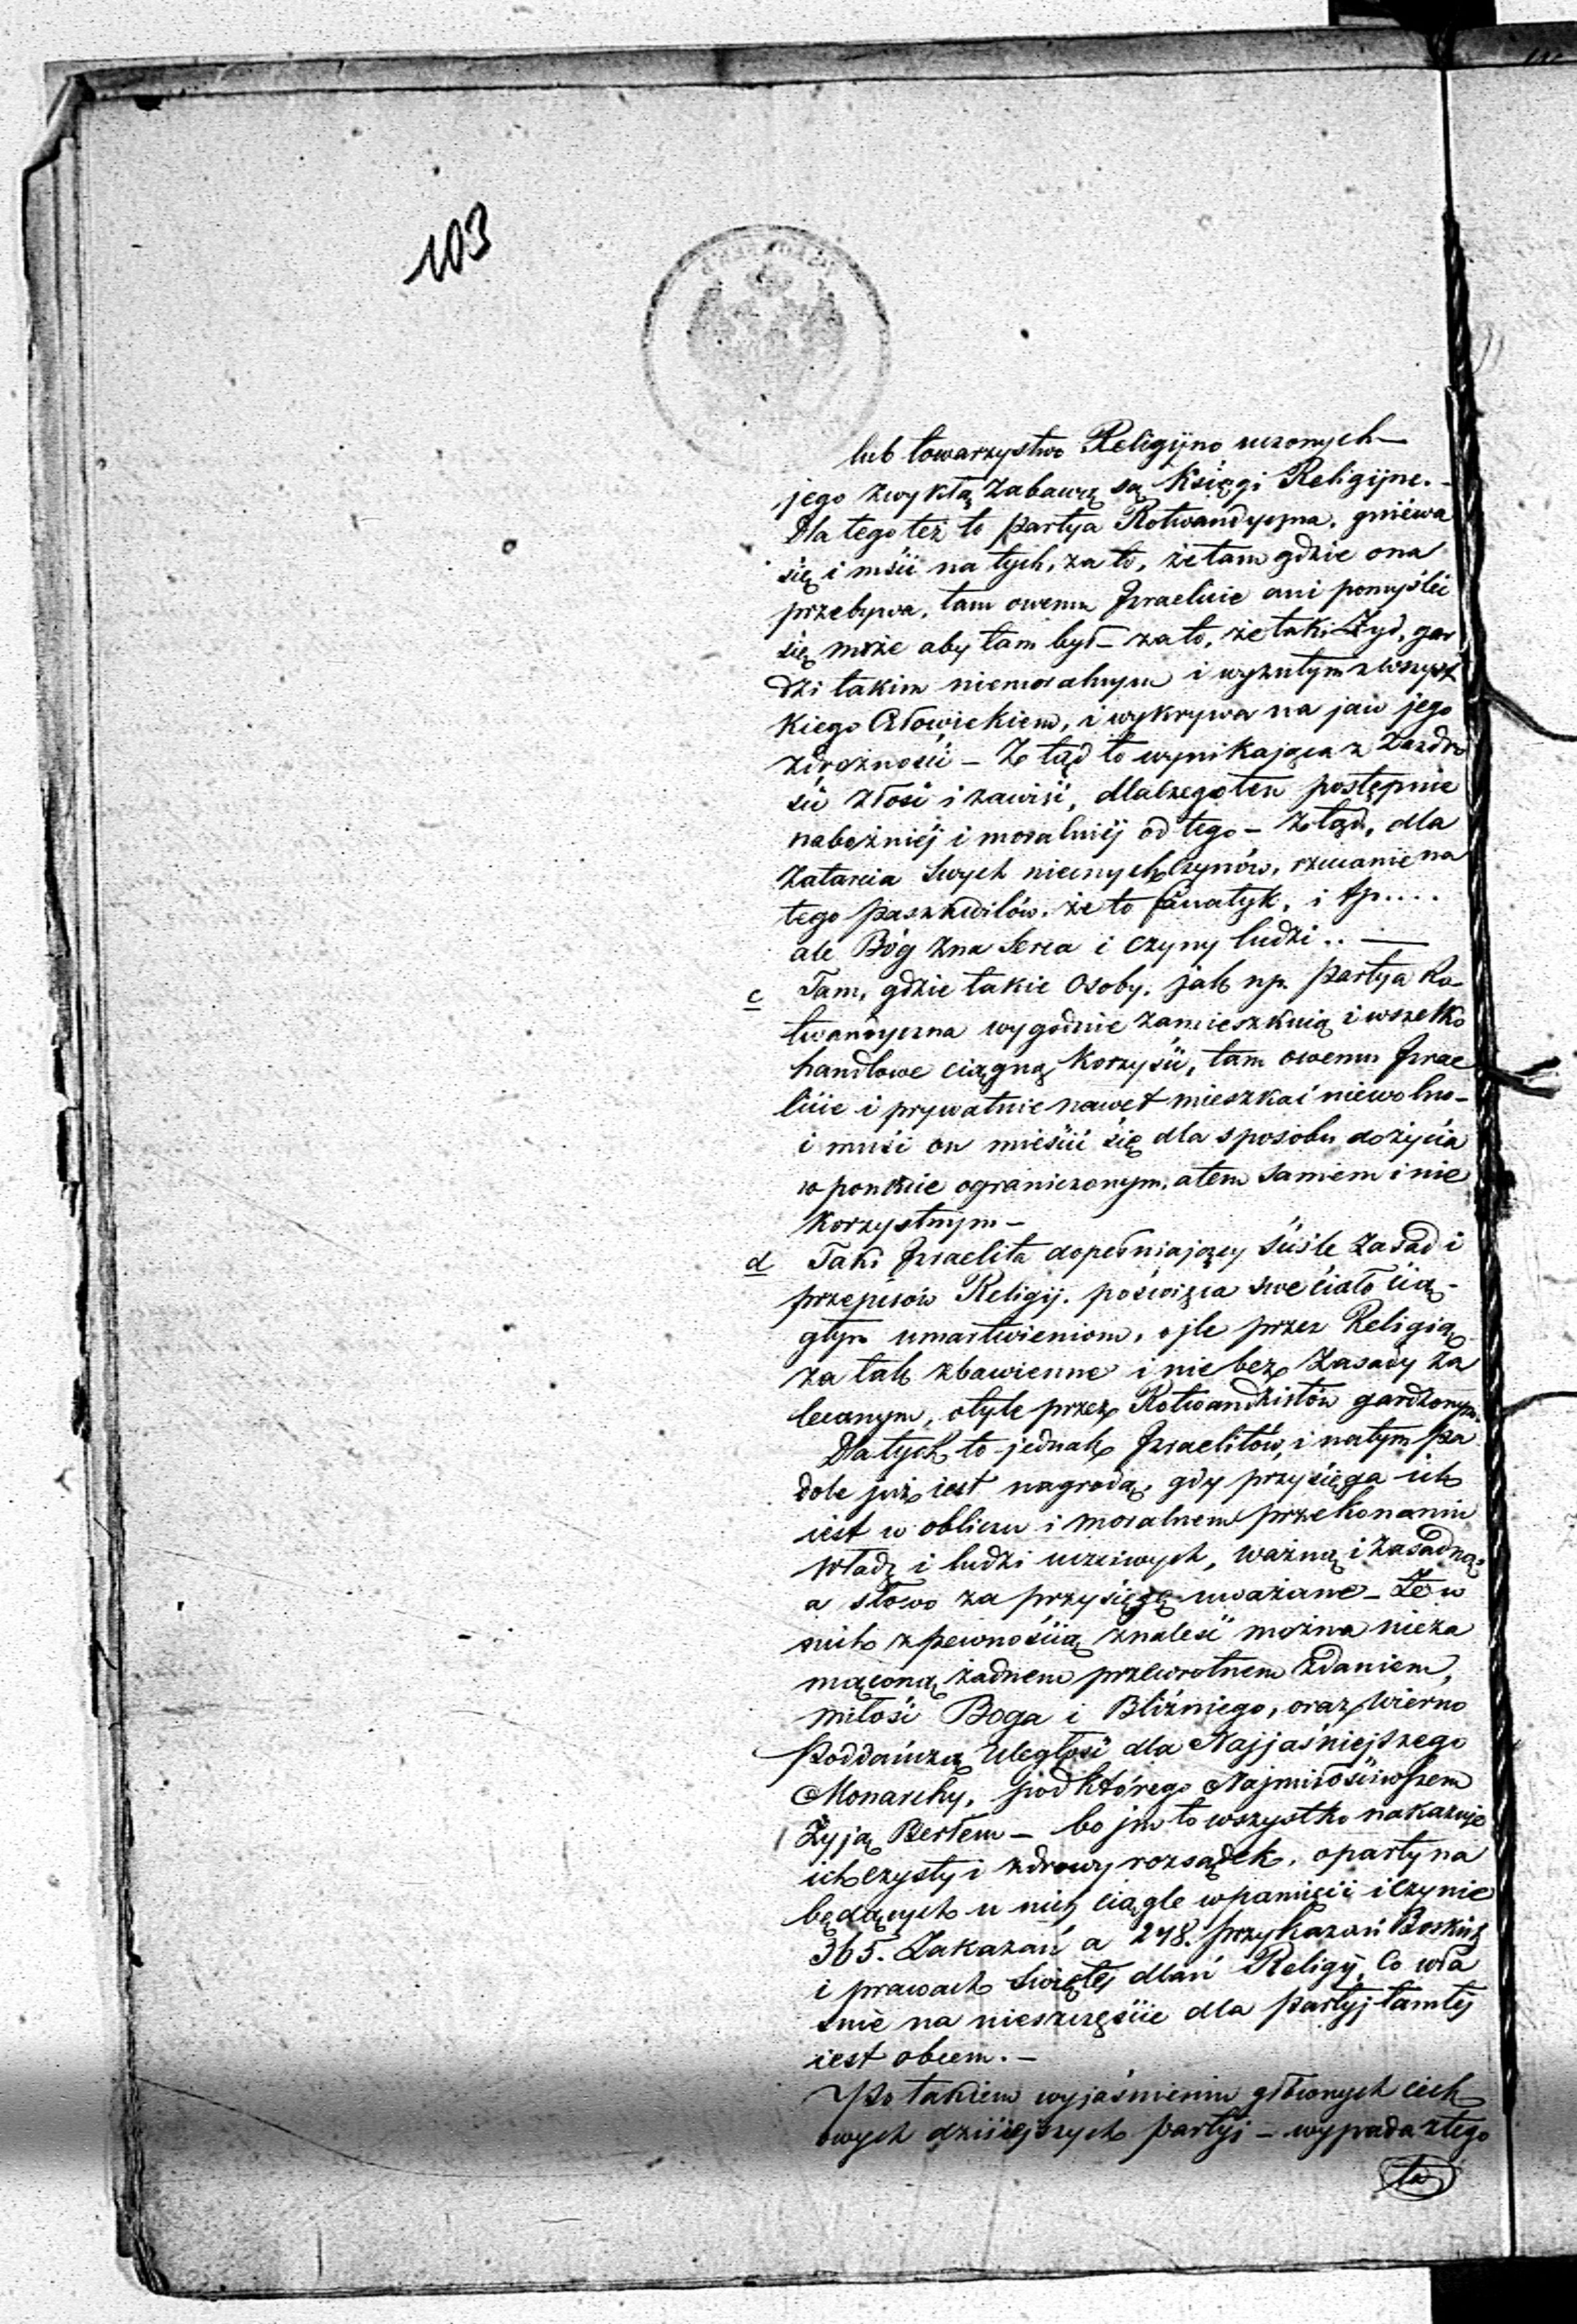 103
lub towarzystwo Religijno uczonych —
jego zwykłą zabawą są Księgi Religijne. -
Dla tego też to partya Rotwandyczna, gniewa
się i mści na tych, za to, że tam gdzie ona
przebywa, tam owemu Izraelicie ani pomyśleć
się może aby tam był – za to, że taki Żyd, gar
dzi takim niemoralnym i wyzutym z wszyst
kiego Człowiekiem, i wykrywa na jaw jego
zdrożności – Z tąd to wynikająca z zazdro
ści złość i zawiść, dla czego ten postępuie
nabożniéj i moralniéj od tego – z tąd, dla
zatarcia swych niecnych czynów, rzucanie na
tego paszkwilów, że to fanatyk, i tp....
ale Bóg zna serca i czyny ludzi .. —
c Tam, gdzie takie Osoby, jak np. partya Ro-
twandyczna wygodnie zamieszkuią i wszelko
handlowe ciągną korzyści, tam owemu Izrae
licie i prywatnie nawet mieszkać niewolno -
i musi on mieścić się dla sposobu do życia
w ponkcie ograniczonym, a tem samem i nie
korzystnym –
d Taki Izraelita dopełniający ściśle zasad i
przepisów Religij. poświęca swe ciało cią-
głym umartwieniom, o jle przez Religią
za tak zbawienne i nie bez zasady za
lecanym, o tyle przez Rotwandzistów gardzonym.
Dla tych to jednak Izraelitów, i na tym pa
dole już iest nagrodą, gdy przysięga ich
iest w obliczu i moralnem przekonaniu
Władz i ludzi uczciwych, ważną i zasadną,
a słowo za przysięgę uważane – Że w
nich z pewnością znaleść można nieza
mąconą żadnem przewrotnem zdaniem,
miłość Boga i Bliźniego, oraz wierno
poddańczą uległość dla Najjaśniejszego
Monarchy, pod którego Najmiłościwszem
Żyją Berłem – bo jm to wszystko nakazuje
ich czysty i zdrowy rozsądek, oparty na
będących u nich ciągle w pamięci i czynie
365. Zakazań a 248. przykazań Boskich
i prawach świętej dlań Religij, Co wła
śnie na nieszczęście dla partyj tamtéj
iest obcem. –
Po takiem wyjaśnieniu głównych cech
owych dziśiejszych partyi – wypada z tego
ta